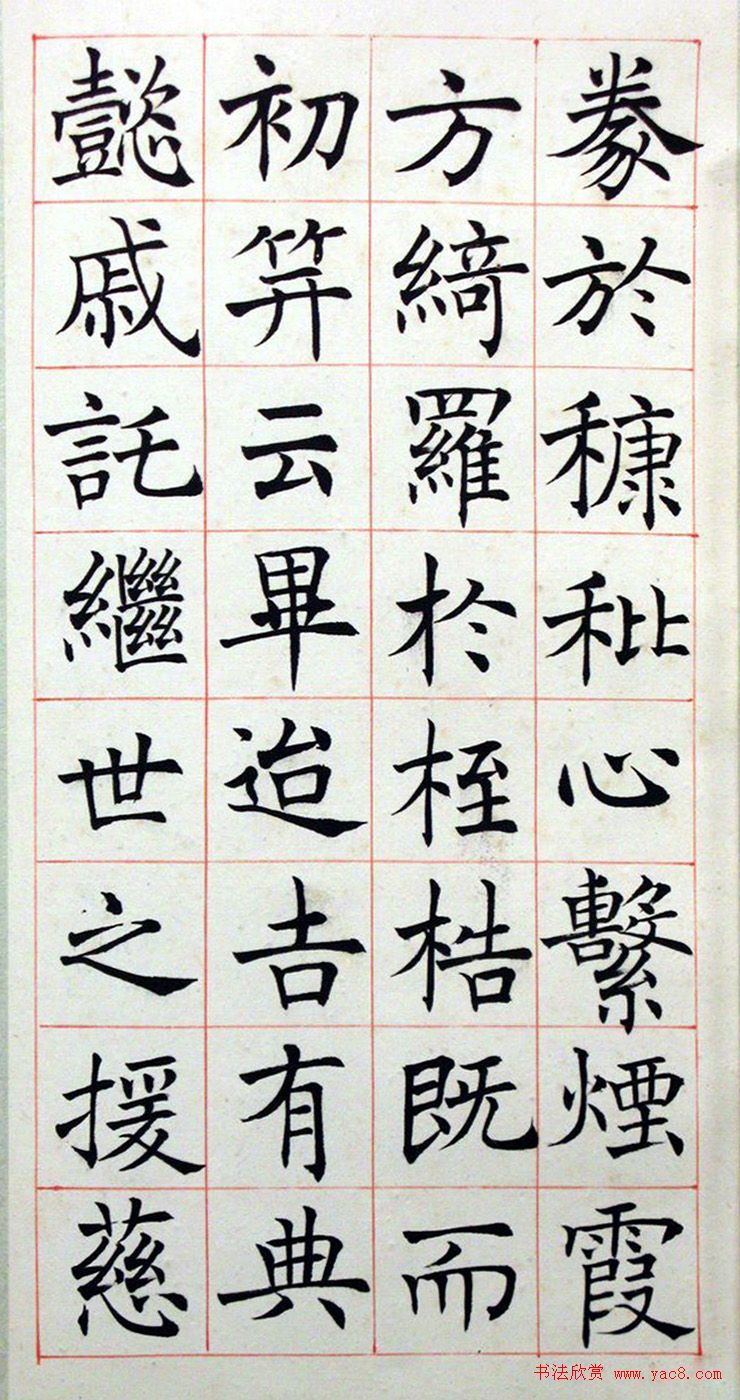 豢於穅秕心繫煙霞
方綺羅於桎梏既而
初笄云畢迨吉有典
懿戚託繼世之援慈
书法欣赏 www.yac8.com